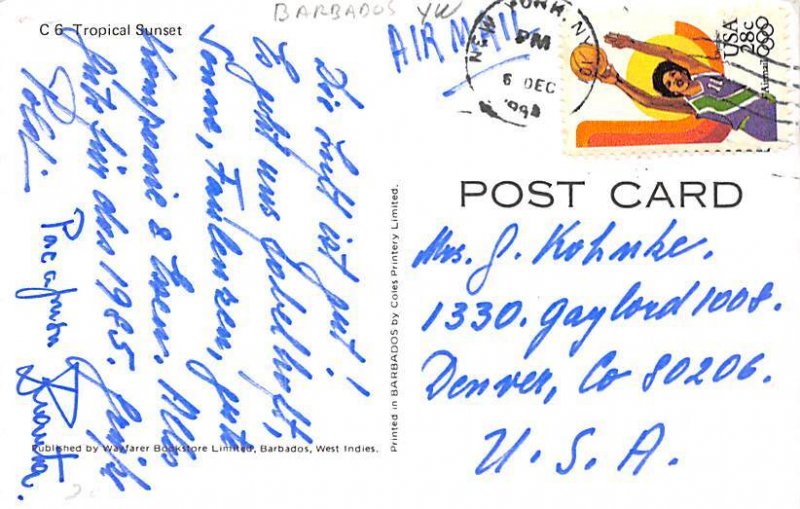 BARBADOS YW
C 6 Tropical Sunset
AIR MAIL
NEW YORK, NY
PM
6 DEC
USA
28c
Airmail
POST CARD
Mrs. J. Kohnke.
1330. Gaylord 1008.
Denver, Co 80206.
U. S. A.
Die Luft ist gut!
Es geht uns
Sonne, Faulenzen, gute
& Essen. Alles
gute für das 1985.
Published by Wayfarer Bookstore Limited, Barbados, West Indies.
Printed in BARBADOS by Coles Printery Limited.